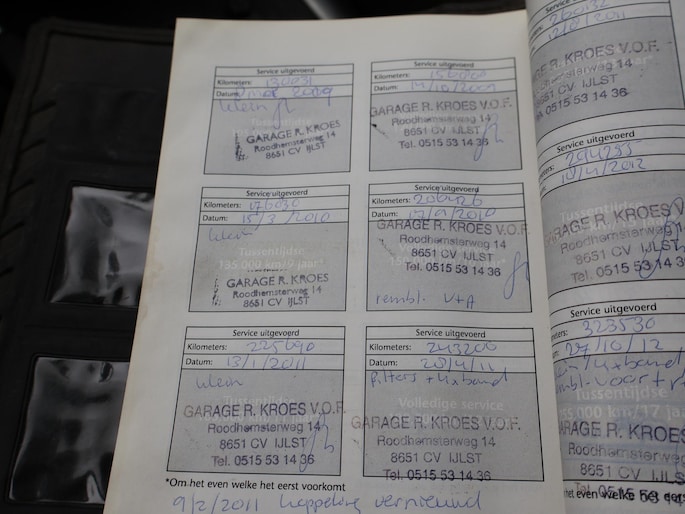 Service uitgevoerd
Kilometers: 130031
Datum: 2009
klein
GARAGE R. KROES
Roodhemsterweg 14
8651 CV IJLST
Service uitgevoerd
Kilometers:
Datum: 14/10/2009
GARAGE R. KROES V.O.F.
Roodhemsterweg 14
8651 CV IJLST
Tel. 0515 53 14 36
Service uitgevoerd
Kilometers: 176030
Datum: 15/3/2010
klein
Tussentijdse
135 000 km/9 jaar*
GARAGE R. KROES
Roodhemsterweg 14
8651 CV IJLST
Service uitgevoerd
Kilometers: 206426
Datum: 17/9/2010
GARAGE R. KROES V.O.F.
Roodhemsterweg 14
8651 CV IJLST
Tel. 0515 53 14 36
rembl. V+A
Service uitgevoerd
Kilometers: 225690
Datum: 13/1/2011
klein
Tussentijdse
GARAGE R. KROES V.O.F.
Roodhemsterweg 14
8651 CV IJLST
Tel. 0515 53 14 36
Service uitgevoerd
Kilometers: 243200
Datum: 20/4/11
filters + 4x band
Volledige service
GARAGE R. KROES V.O.F.
Roodhemsterweg 14
8651 CV IJLST
Tel. 0515 53 14 36
*Om het even welke het eerst voorkomt
9/2/2011 koppeling vernieuwd
260132
12/8/2011
GARAGE R. KROES V.O.F.
Roodhemsterweg 14
8651 CV IJLST
Tel. 0515 53 14 36
Service uitgevoerd
294255
10/4/2012
Tussentijdse
GARAGE R. KROES V
Roodhemsterweg 14
8651 CV IJLST
Tel. 0515 53 14 36
Service uitgevoerd
323530
27/10/12
4x band
voor +
Tussentijdse
GARAGE R. KROES
Roodhemsterweg
8651 CV IJLS
Tel. 0515 53 14
het even welke het eers